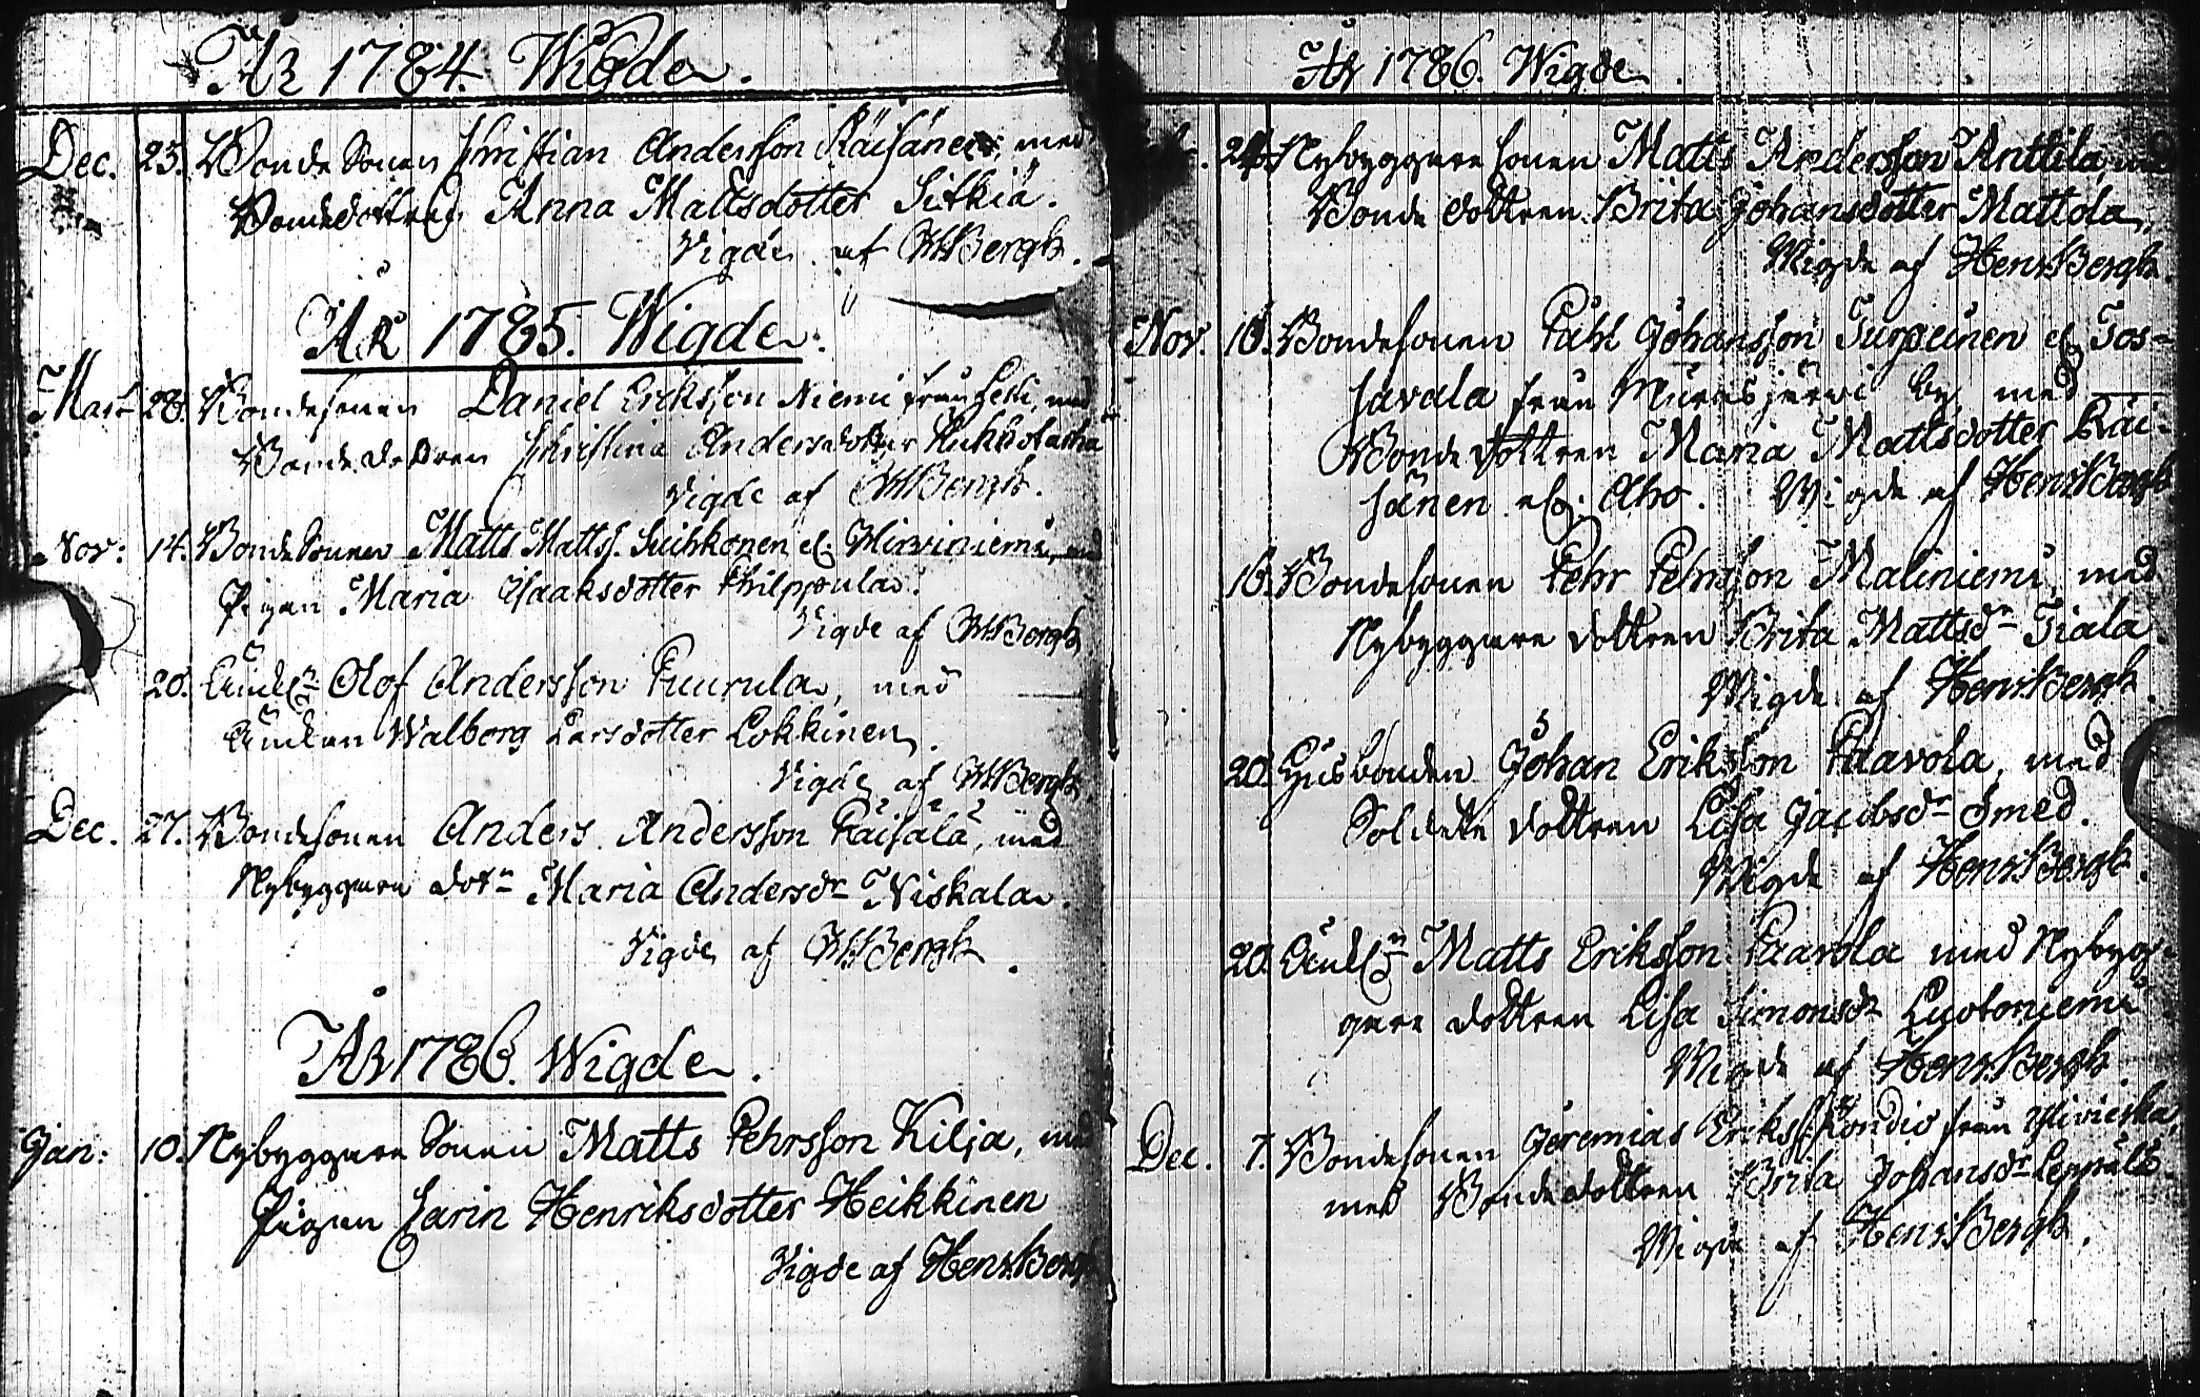 År 1784. Wigde.
Dec. 23. Bonde Sonen Christian Andersson Räisänen, med
Bondedottren Anna Mattsdotter Sitkiä.
Vigde af HBergh.
ÅR 1785. Wigde.
Mars 28. Bondesonen Daniel Eriksson Niemi från, med
Bonde dottren Christina Andersdotter
Vigde af HBergh.
Nov: 14. Bonde Sonen Matts Mattss. Suihkonen el. Hirviniemi, med
Pigan Maria Isaaksdotter Philppula.
Vigde af HBergh
20. Enkl:n Olof Andersson Puurula, med
Enkan Walborg Larsdotter Lokkinen.
Vigde af HBergh
Dec. 27. Bondesonen Anders Andersson Päisälä, med
Nybyggare dotn Maria Andersdr Niskala.
Vigde af HBergh.
År 1786. Wigde.
Jan: 10. Nybyggare Sonen Matts Pehrsson Kilja, med
Pigan Carin Henriksdotter Heikkinen
Vigde af Henr.Bergh
År 1786. Wigde.
24. Nybyggare sonen Matts Andersson Anttila, med
Bonde dottren Brita Johansdotter Mattola.
Wigde af Henr.Bergh.
Nov. 10. Bondesonen Påhl Johansson Turpeinen el. Tos-
savala från Murasjärvi by, med
Bonde dottren Maria Mattsdotter Räi-
sänen el. Aho. Wigde af Henr.Bergh
16. Bondesonen Pehr Pehrsson Maliniemi, med
Nybyggare dottren Brita Mattsdr Tiala.
Wigde af Henr.Bergh.
20. Husbonden Johan Eriksson Paavola, med
Soldate dottren Lisa Jacobsdr Smed.
Wigde af Henr.Bergh.
20. Enkl:n Matts Eriksson Paavola med Nybyg-
gare dottren Lisa Simonsdr Luotoniemi
Wigde af Henr.Bergh.
Dec. 7. Bondesonen Jeremias Erikss. Kondio från Ylivieska,
med Bondedottren Brita Johansdr Leppälä.
Wigde af Henr.Bergh.